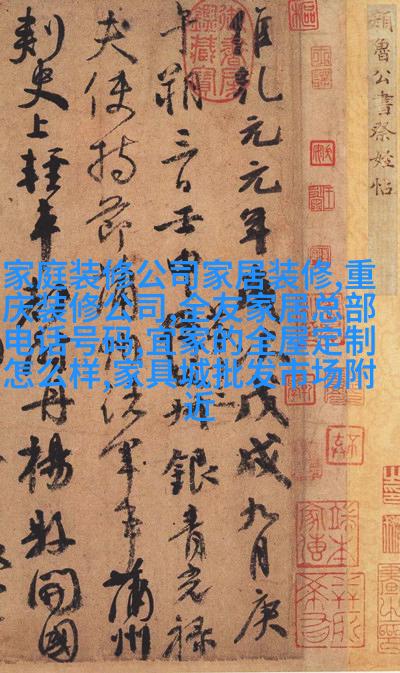 顏魯公書祭姪帖
維乾元元年歲次戊戌九月庚
午朔三日壬申銀青光祿
夫使持節蒲州諸軍事蒲州
刺史上輕車都尉丹楊縣開國
家庭装修公司家居装修,重
庆装修公司,全友家居总部
电话号码,宜家的全屋定制
怎么样,家具城批发市场附
近